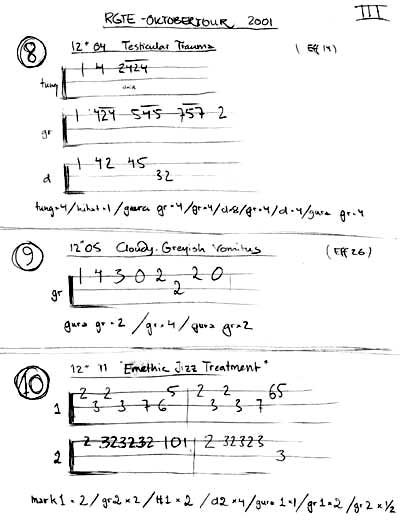 RGTE - OKTOBERTOUR 2001
III
8 12" 04 Testicular Trauma (Eff 14)
tung 1 4 2424
gr 1 424 545 757 2
d 1 42 45
32
tung=4/hihat=1/guara gr=4/gr=4/d=8/gr=4/d=4/gura gr=4
9 12"05 Cloudy-Greyish Vomitus (Eff 26)
gr 1 4 3 0 2 2 0
2
gura gr=2 /gr=4 /gura gr×2
10 12" 11 "Emethic Jizz Treatment"
2 2 5 2 2 65
1 3 3 7 6 3 3 7
2 2 323232 101 2 32323
3
mark1=2/gr2×2/H1×2 /d2×4/gura 1×1/gr1=2/gr2×1/2